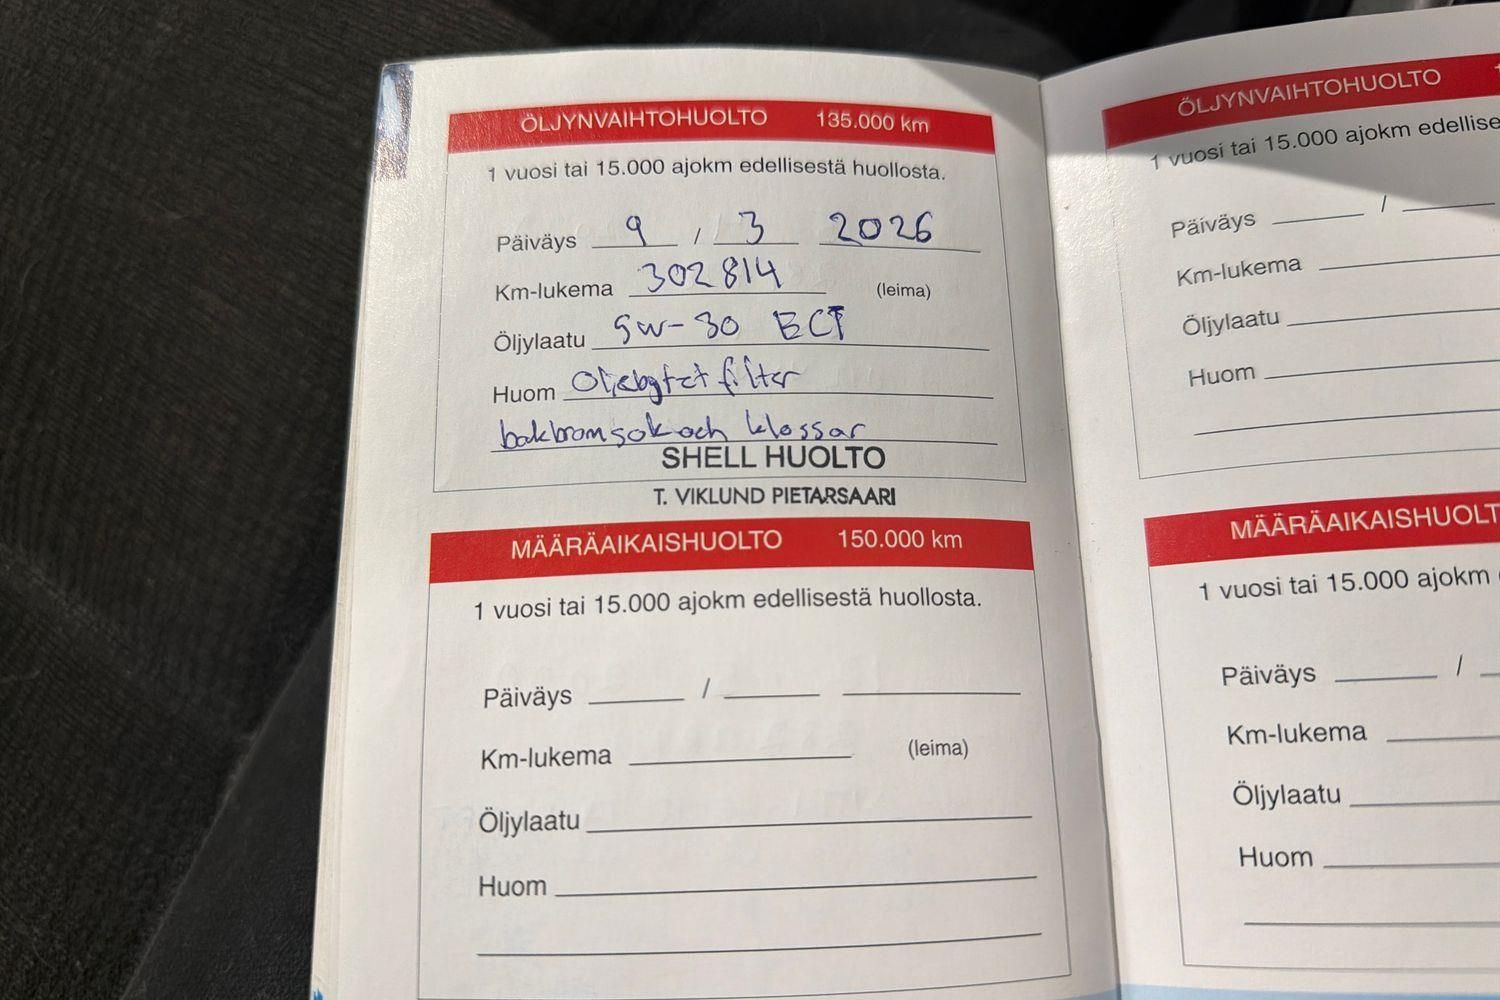 ÖLJYNVAIHTOHUOLTO 135.000 km
1 vuosi tai 15.000 ajokm edellisestä huollosta.
Päiväys 9 / 3 2026
Km-lukema 302814 (leima)
Öljylaatu 5w-30 ECT
Huom Oljebytet filter
bakbromsok och klossar
SHELL HUOLTO
T. VIKLUND PIETARSAARI
MÄÄRÄAIKAISHUOLTO 150.000 km
1 vuosi tai 15.000 ajokm edellisestä huollosta.
Päiväys /
Km-lukema (leima)
Öljylaatu
Huom
ÖLJYNVAIHTOHUOLTO
1 vuosi tai 15.000 ajokm
Päiväys /
Km-lukema
Öljylaatu
Huom
1 vuosi tai 15.000 ajokm
Päiväys /
Km-lukema
Öljylaatu
Huom